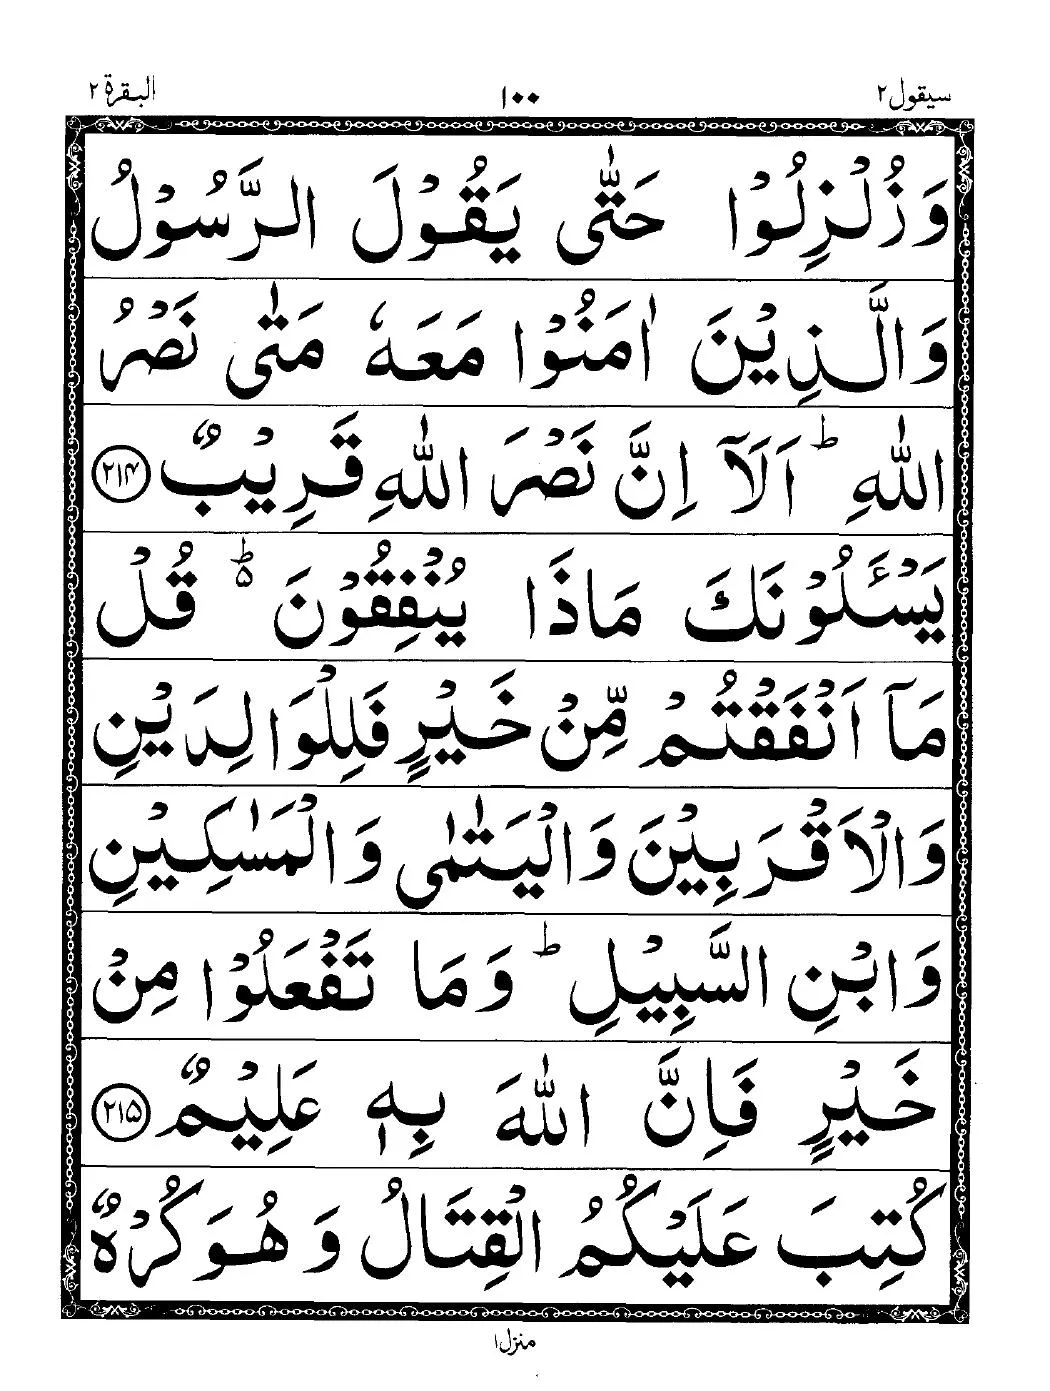 سيقول ٢ ١٠٠ البقرة ٢
وَزُلْزِلُوْا حَتّٰى يَقُوْلَ الرَّسُوْلُ
وَالَّذِيْنَ اٰمَنُوْا مَعَهٗ مَتٰى نَصْرُ
اللّٰهِ ؕ اَلَاۤ اِنَّ نَصْرَ اللّٰهِ قَرِيْبٌ ﴿۲۱۴﴾
يَسْـَٔلُوْنَكَ مَاذَا يُنْفِقُوْنَ ۵ؕ قُلْ
مَاۤ اَنْفَقْتُمْ مِّنْ خَيْرٍ فَلِلْوَالِدَيْنِ
وَالْاَقْرَبِيْنَ وَالْيَتٰمٰى وَالْمَسٰكِيْنِ
وَابْنِ السَّبِيْلِ ؕ وَمَا تَفْعَلُوْا مِنْ
خَيْرٍ فَاِنَّ اللّٰهَ بِهٖ عَلِيْمٌ ﴿۲۱۵﴾
كُتِبَ عَلَيْكُمُ الْقِتَالُ وَهُوَ كُرْهٌ
منزل ١